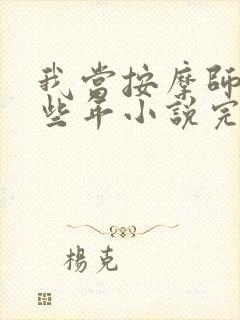 我當按摩師
些年小說完
楊克